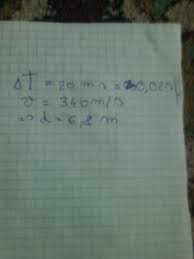 ΔT = 20 ms = 0,02s
v = 340 m/s
=> d = 6,8 m